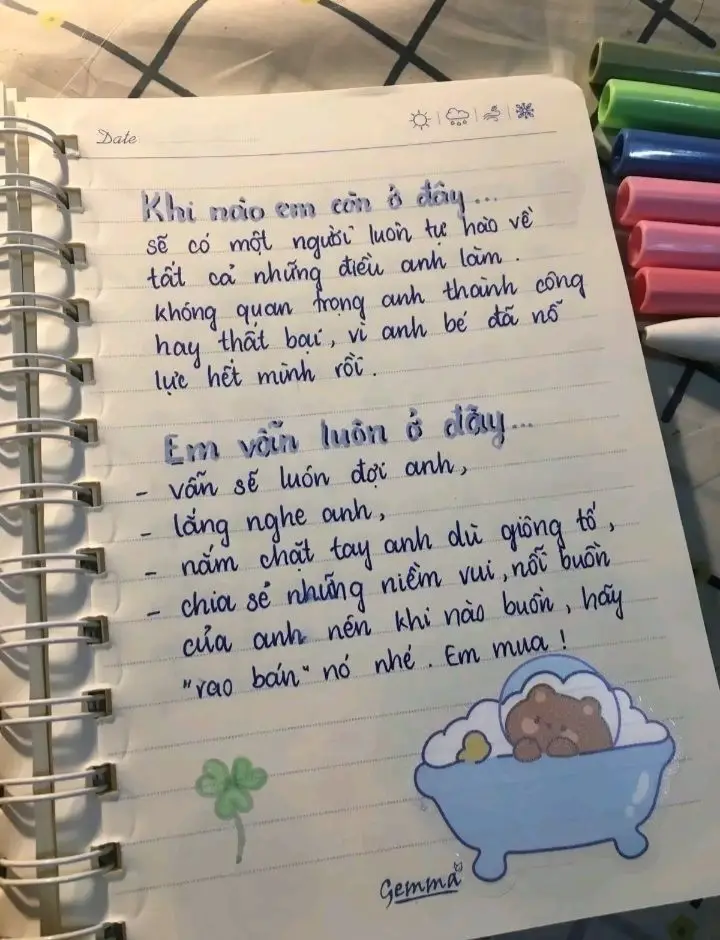 Date:
Khi nào em còn ở đây...
sẽ có một người luôn tự hào về
tất cả những điều anh làm.
không quan trọng anh thành công
hay thất bại, vì anh bé đã nỗ
lực hết mình rồi.
Em vẫn luôn ở đây...
- vẫn sẽ luôn đợi anh,
- lắng nghe anh,
- nắm chặt tay anh dù giông tố,
- chia sẻ những niềm vui, nỗi buồn
của anh nên khi nào buồn, hãy
"rao bán" nó nhé. Em mua!
Gemma